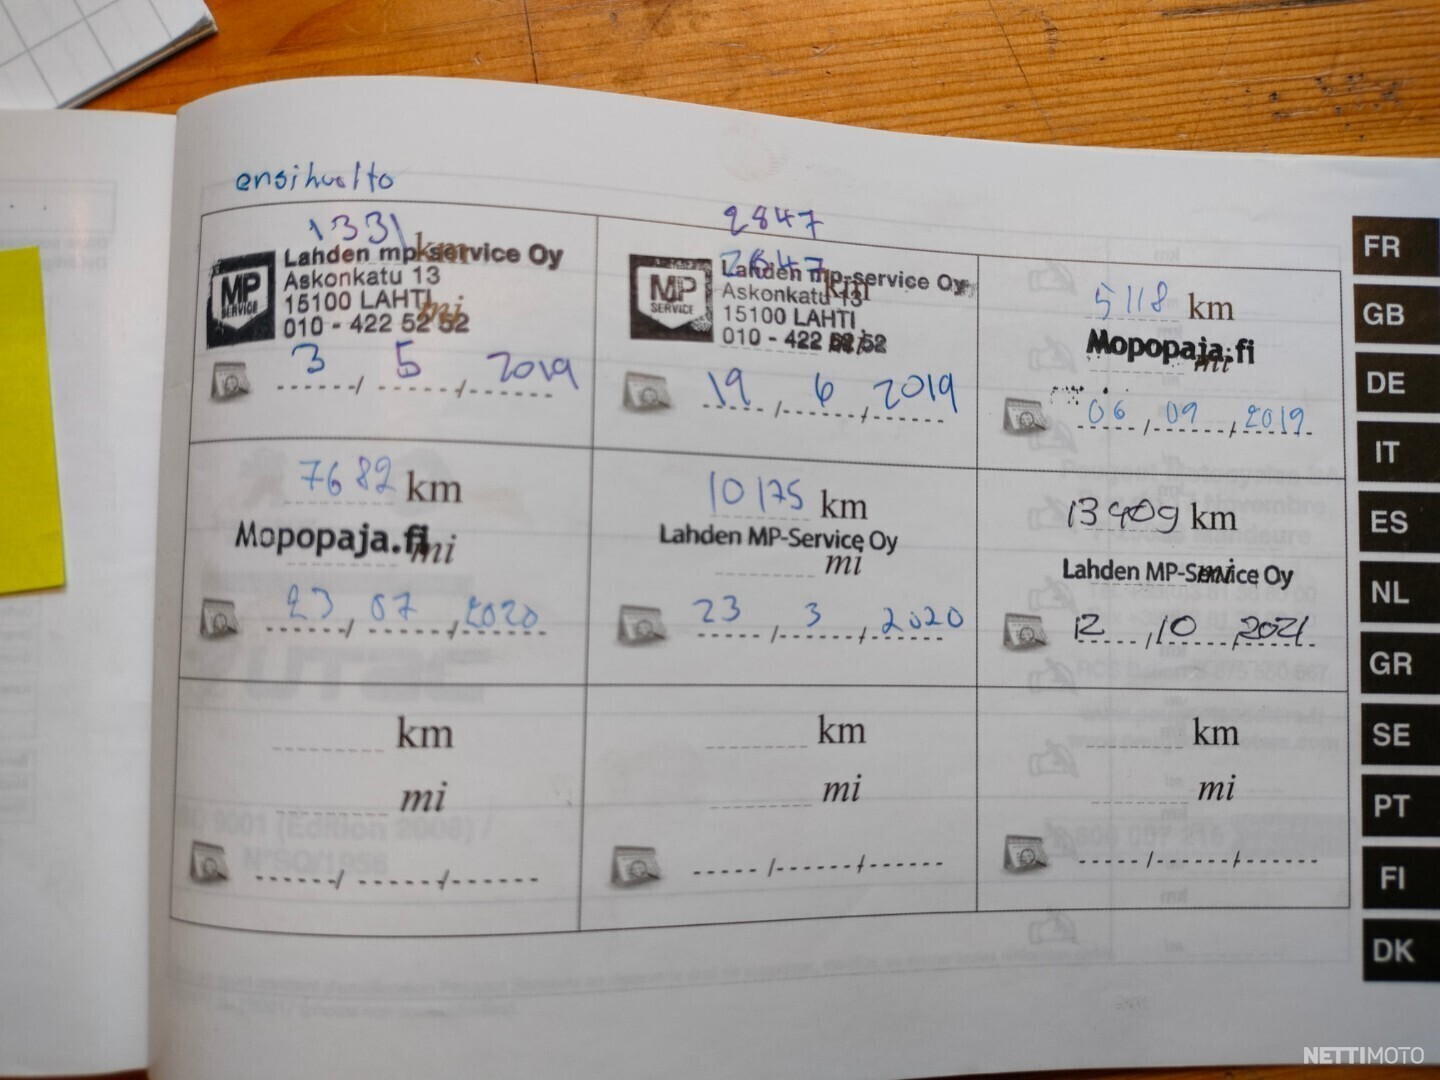 ensihuolto
1331 km
MP SERVICE
Lahden mp-service Oy
Askonkatu 13
15100 LAHTI
mi
010 - 422 52 52
3 / 5 / 2019
2847
2847 km
MP SERVICE
Lahden mp-service Oy
Askonkatu 13
15100 LAHTI
010 - 422 52 52
mi
19 / 6 / 2019
5118 km
Mopopaja.fi
mi
06 / 09 / 2019
7682 km
Mopopaja.fi
mi
23 / 07 / 2020
10175 km
Lahden MP-Service Oy
mi
23 / 3 / 2020
13909 km
Lahden MP-Service Oy
mi
12 / 10 / 2021
km
mi
km
mi
km
mi
FR
GB
DE
IT
ES
NL
GR
SE
PT
FI
DK
NETTIMOTO